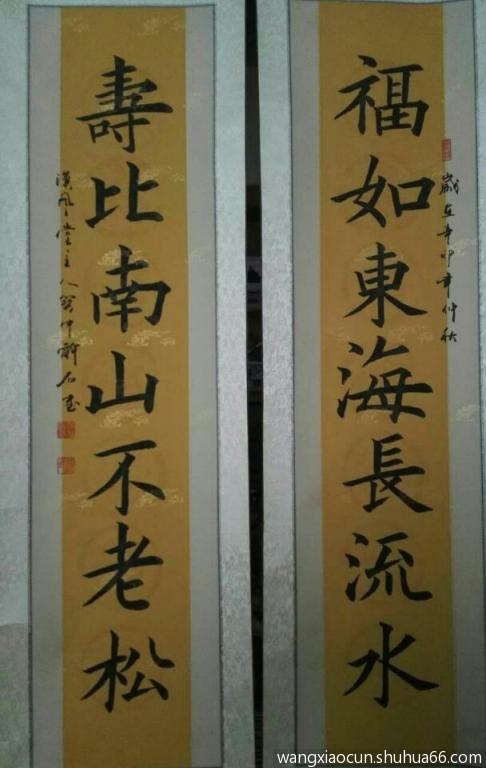 福如東海長流水
歲在辛卯年仲秋
壽比南山不老松
漢風堂主人
wangxiaocun.shuhua66.com